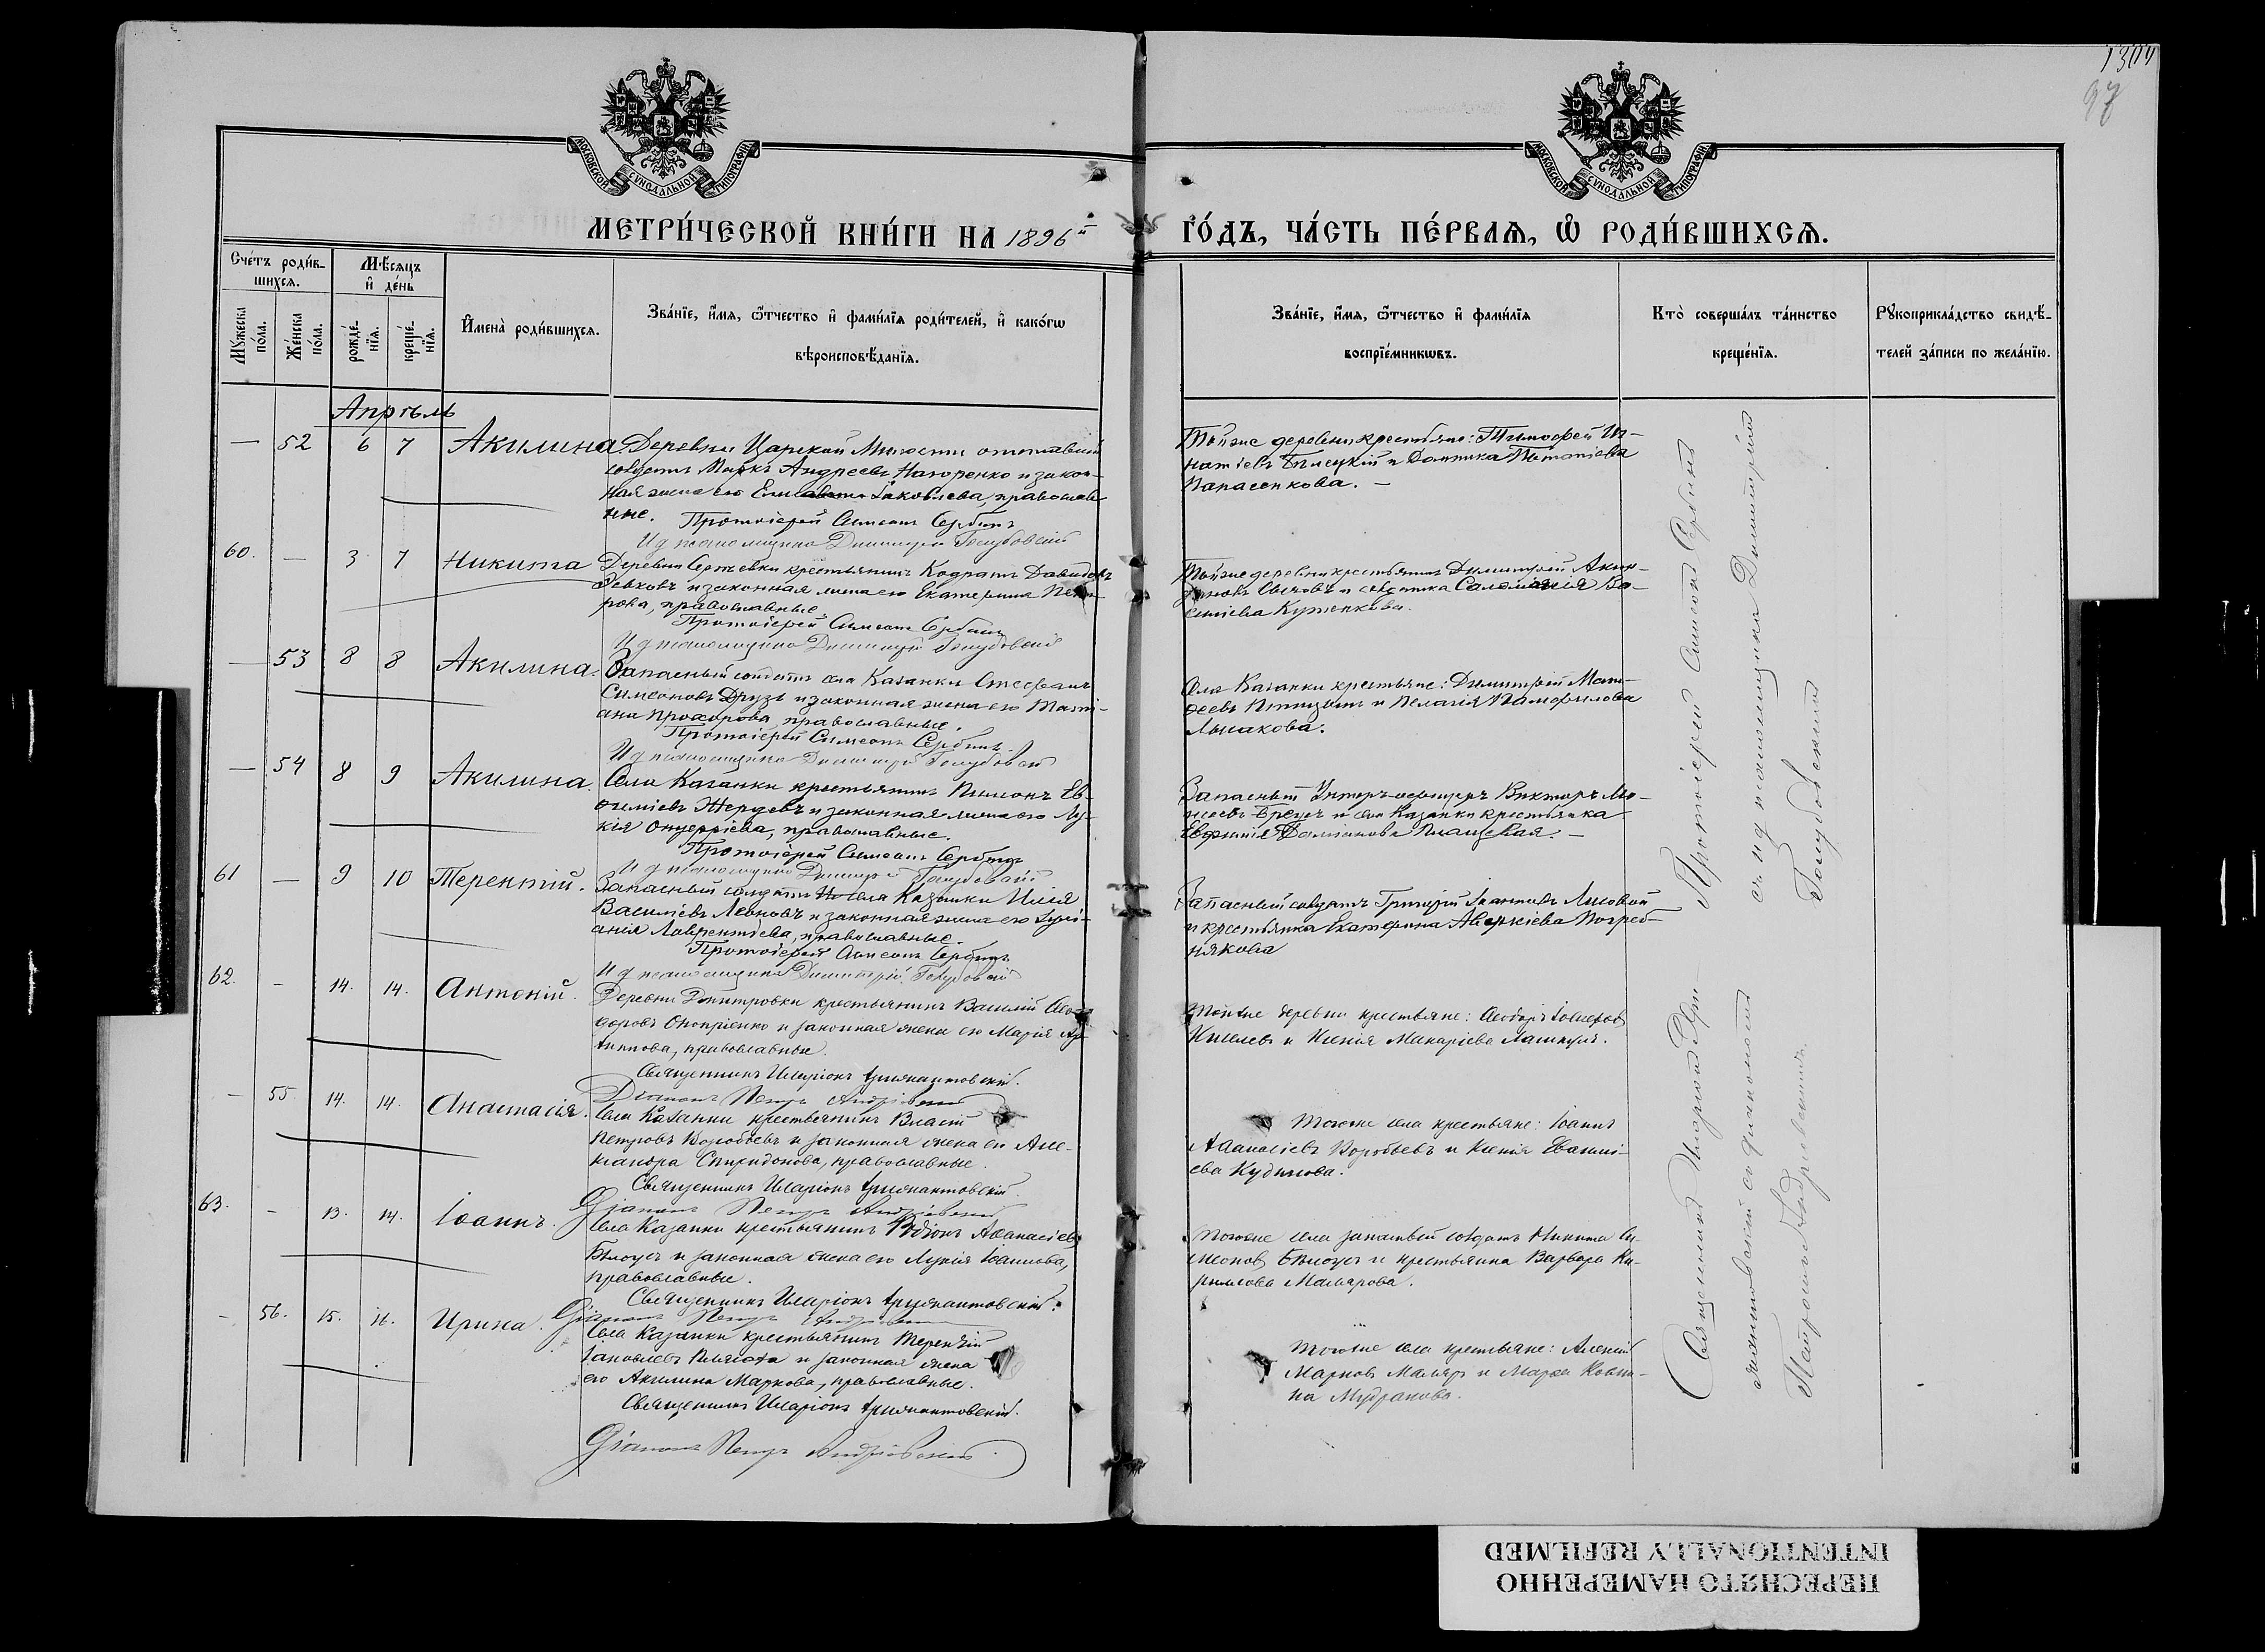 1304
97
МОСКОВСКОЙ СѴНОДАЛЬНОЙ ТИПОГРАФІИ
МОСКОВСКОЙ СѴНОДАЛЬНОЙ ТИПОГРАФІИ
МЕТРИ́ЧЕСКОЙ КНИ́ГИ НА 1896й ГО́ДЪ, ЧА́СТЬ ПЕ́РВАѦ, Ѡ҆ РОДИ́ВШИХСѦ.
Сче́тъ роди́в-
шихсѧ.
Мꙋ́жеска
по́ла.
Же́нска
по́ла.
Мѣ́сѧцъ
и҆ де́нь
рожде́-
нїѧ.
креще́-
нїѧ.
И҆мена̀ роди́вшихсѧ.
Зва́нїе, и҆́мѧ, ѻ҆́тчество и҆ фами́лїѧ роди́телей, и҆ како́гѡ
вѣроисповѣ́данїѧ.
Зва́нїе, и҆́мѧ, ѻ҆́тчество и҆ фами́лїѧ
воспрїе́мникѡвъ.
Кто̀ соверша́лъ та́инство
креще́нїѧ.
Рꙋкоприкла́дство свидѣ́-
телей за́писи по жела́нїю.
Апрѣль
— 52 6 7 Акилина
Деревни Царской Милости отставной
солдатъ Маркъ Андреевъ Нагоренко и закон-
ная жена его Яковлева, православ-
ные.
Протоіерей Симеонъ Сербинъ
И д псаломщика Димитрій Голубовскій
Тойже деревни крестьяне: Тимофей Иг-
натіевъ Билецкій и
Панасенкова. —
60. — 3 7 Никита
Деревни Сергѣевки крестьянинъ Кодратъ Давидовъ
и законная жена его Екатерина Пет-
рова, православные.
Протоіерей Симеонъ Сербинъ
И д псаломщика Димитрій Голубовскій
Тойже деревни крестьянинъ Димитрій
и Саломанія Ва-
силіева Куценкова.
— 53 8 8 Акилина.
Запасный солдатъ села Казанки Стефанъ
Симеоновъ Друзь и законная жена его Тати-
ана Прохорова, православные.
Протоіерей Симеонъ Сербинъ.
И д псаломщика Димитрій Голубовскій
Села Казанки крестьяне: Димитрій Мат-
феевъ и Пелагія Памфилова
Лысакова.
— 54 8 9 Акилина.
Села Казанки крестьянинъ Пименъ Ев-
фиміевъ Жердевъ и законная жена его Лу-
кія Онуфріева, православные.
Протоіерей Симеонъ Сербинъ
И д псаломщика Димитрій Голубовскій
Запасный Унтеръ-офицеръ Викторъ Мо-
исеевъ и села Казанки крестьянка
Евфимія Даміанова —
61 — 9 10 Терентій.
Запасный солдатъ села Казанки Илія
Василіевъ Леоновъ и законная жена его Іулі-
анія Лаврентіева, православные.
Протоіерей Симеонъ Сербинъ
И д псаломщика Димитрій Голубовскій
Запасный солдатъ Григорій Іоанновъ Лисовой
и крестьянка Екатерина Аверкіева Погреб-
някова
62. – 14. 14. Антоній.
Деревни Дмитровки крестьянинъ Василій Ѳео-
доровъ Оноприенко и законная жена его Марія Ар-
, православные.
Священникъ Иларіонъ
Діаконъ Петръ Андріевскій
Тойже деревни крестьяне: Ѳеодоръ Іосифовъ
Киселевъ и Ксенія Макаріева
– 55 14. 14. Анастасія.
Села Казанки крестьянинъ Власій
Петровъ Воробьевъ и законная жена его Алек-
сандра Спиридонова, православные.
Священникъ Иларіонъ
Діаконъ Петръ Андріевскій
Тогоже села крестьяне: Іоаннъ
Аѳанасіевъ Воробьевъ и Ксенія
Кудинова.
63. – 13. 14. Іоаннъ.
Села Казанки крестьянинъ Родіонъ Аѳанасіевъ
Бѣлоусъ и законная жена его Лукія Іоаннова,
православные.
Священникъ Иларіонъ
Діаконъ Петръ Андріевскій
Тогоже села запасный солдатъ Никита Си-
меоновъ Бѣлоусъ и крестьянка Варвара Ки-
риллова Малярова.
– 56. 15. 16. Ирина.
Села Казанки крестьянинъ Терентій
Іаковлевъ и законная жена
его Акилина Маркова, православные.
Священникъ Иларіонъ
Діаконъ Петръ Андріевскій
Тогоже села крестьяне: Алексій
Марковъ Маляръ и Марѳа
Мудракова.
Протоіерей Симеонъ Сербинъ
съ и д псаломщика Димитріемъ
Голубовскимъ
Священникъ Иларіонъ
съ діакономъ
Петромъ Андріевскимъ.
ПЕРЕСНЯТО НАМЕРЕННО
INTENTIONALLY REFILMED